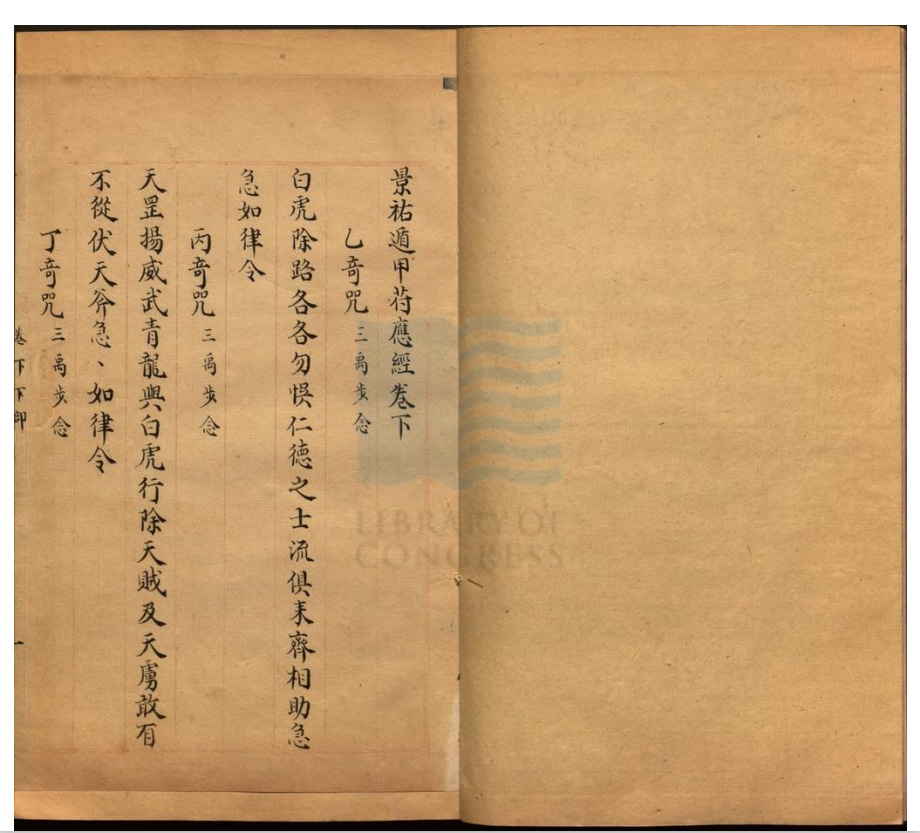 景祐遁甲符應經卷下
乙奇咒 三禹步念
白虎除路各各勿悮仁德之士流俱来齊相助急
急如律令
丙奇咒 三禹步念
天罡揚威武青龍興白虎行除天賊及天虜敢有
不從伏天斧急、如律令
丁奇咒 三禹步念
卷下下卸
一
LIBRARY OF
CONGRESS